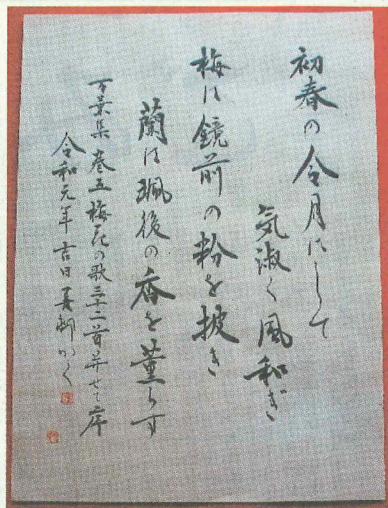 初春の令月にして
気淑く風和ぎ
梅は鏡前の粉を披き
蘭は珮後の香を薫らす
万葉集巻五梅花の歌三十二首并せて序
令和元年吉日